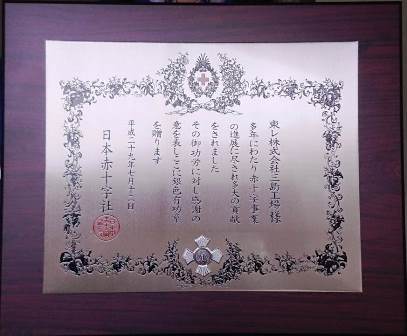 東レ株式会社三島工場 様
多年にわたり赤十字事業
の進展に尽され多大の貢献
をされました
その御功労に対し感謝の
意を表しここに銀色有功章
を贈ります
平成二十九年七月十二日
日本赤十字社